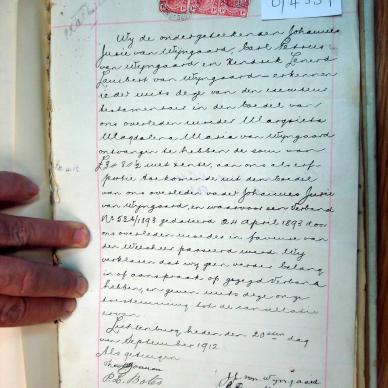 6/4551
Wy de ondergeteekenden Johannes
Jurie van Wyngaard, Carl Petrus
van Wyngaard en Hendrik Lenerd
Lambert van Wyngaard – erkennen
ieder mits deze van den executeur
testamentair in den boedel van
ons overleden moeder Margrieta
Magdalena Maria van Wyngaard
ontvangen te hebben de som van
met renten, aan ons als erf-
portie toekomende uit den boedel
van ons overleden vader Johannes Jurie
van Wyngaard, en waarvoor een Verband
No 524/1893 gedateerd 24 April 1893 door
ons overleden moeder in faveure van
den Meester passeerd werd. Wy
verklaren dat wy geen verder belang
in of aanspraak op gezegd Verband
hebben, en geven mits deze onze
toestemming tot de cancellatie
ervan.
Lichtenburg heden den 20sten dag
van September 1912.
Als getuigen
P. L. Botes
J. J. van Wyngaard